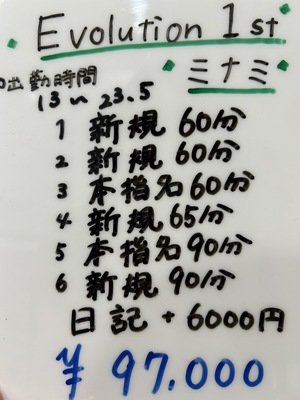 Evolution 1st
ミナミ
出勤時間
13〜23.5
1 新規 60分
2 新規 60分
3 本指名 60分
4 新規 65分
5 本指名 90分
6 新規 90分
日記 + 6000円
¥ 97.000